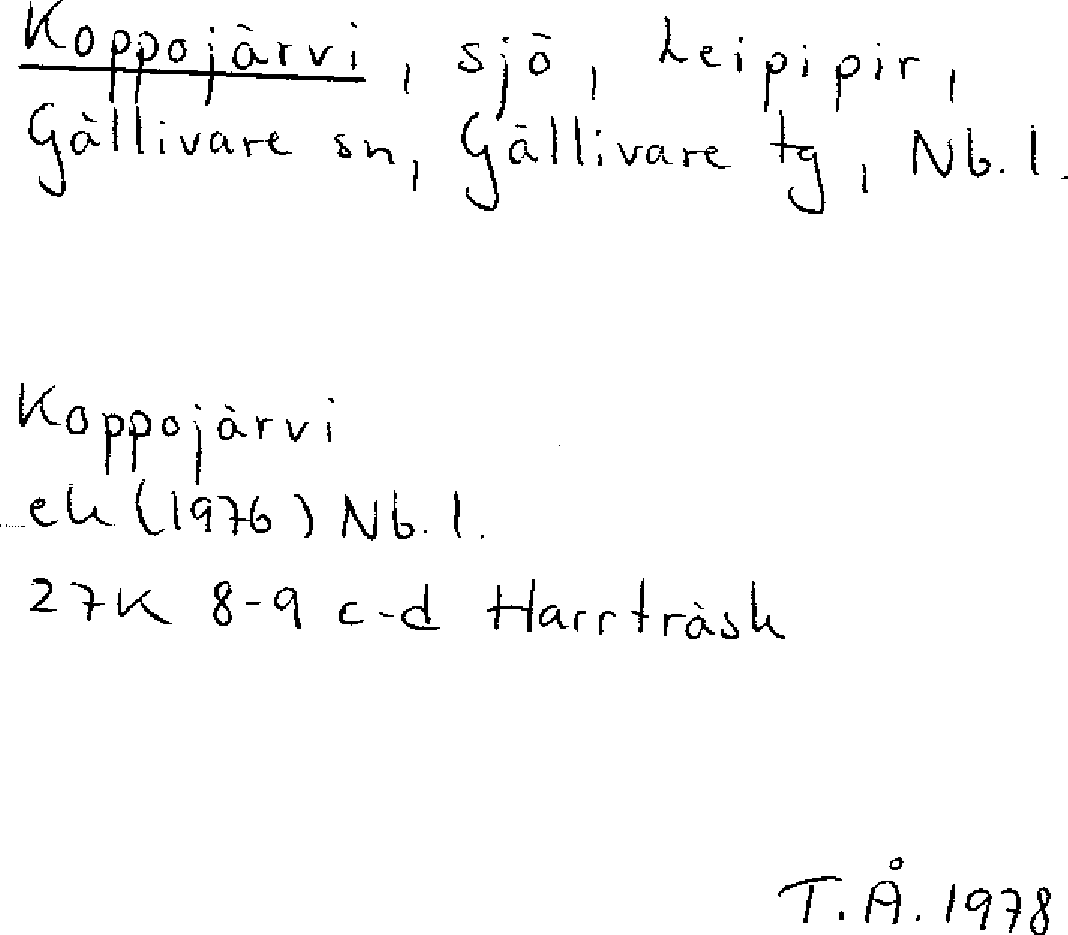 Koppojärvi, sjö, Leipipir,
Gällivare sn, Gällivare tg, Nb. l.
Koppojärvi
ek (1976) Nb. l.
27K 8-9 c-d Harrträsk
T. Å. 1978